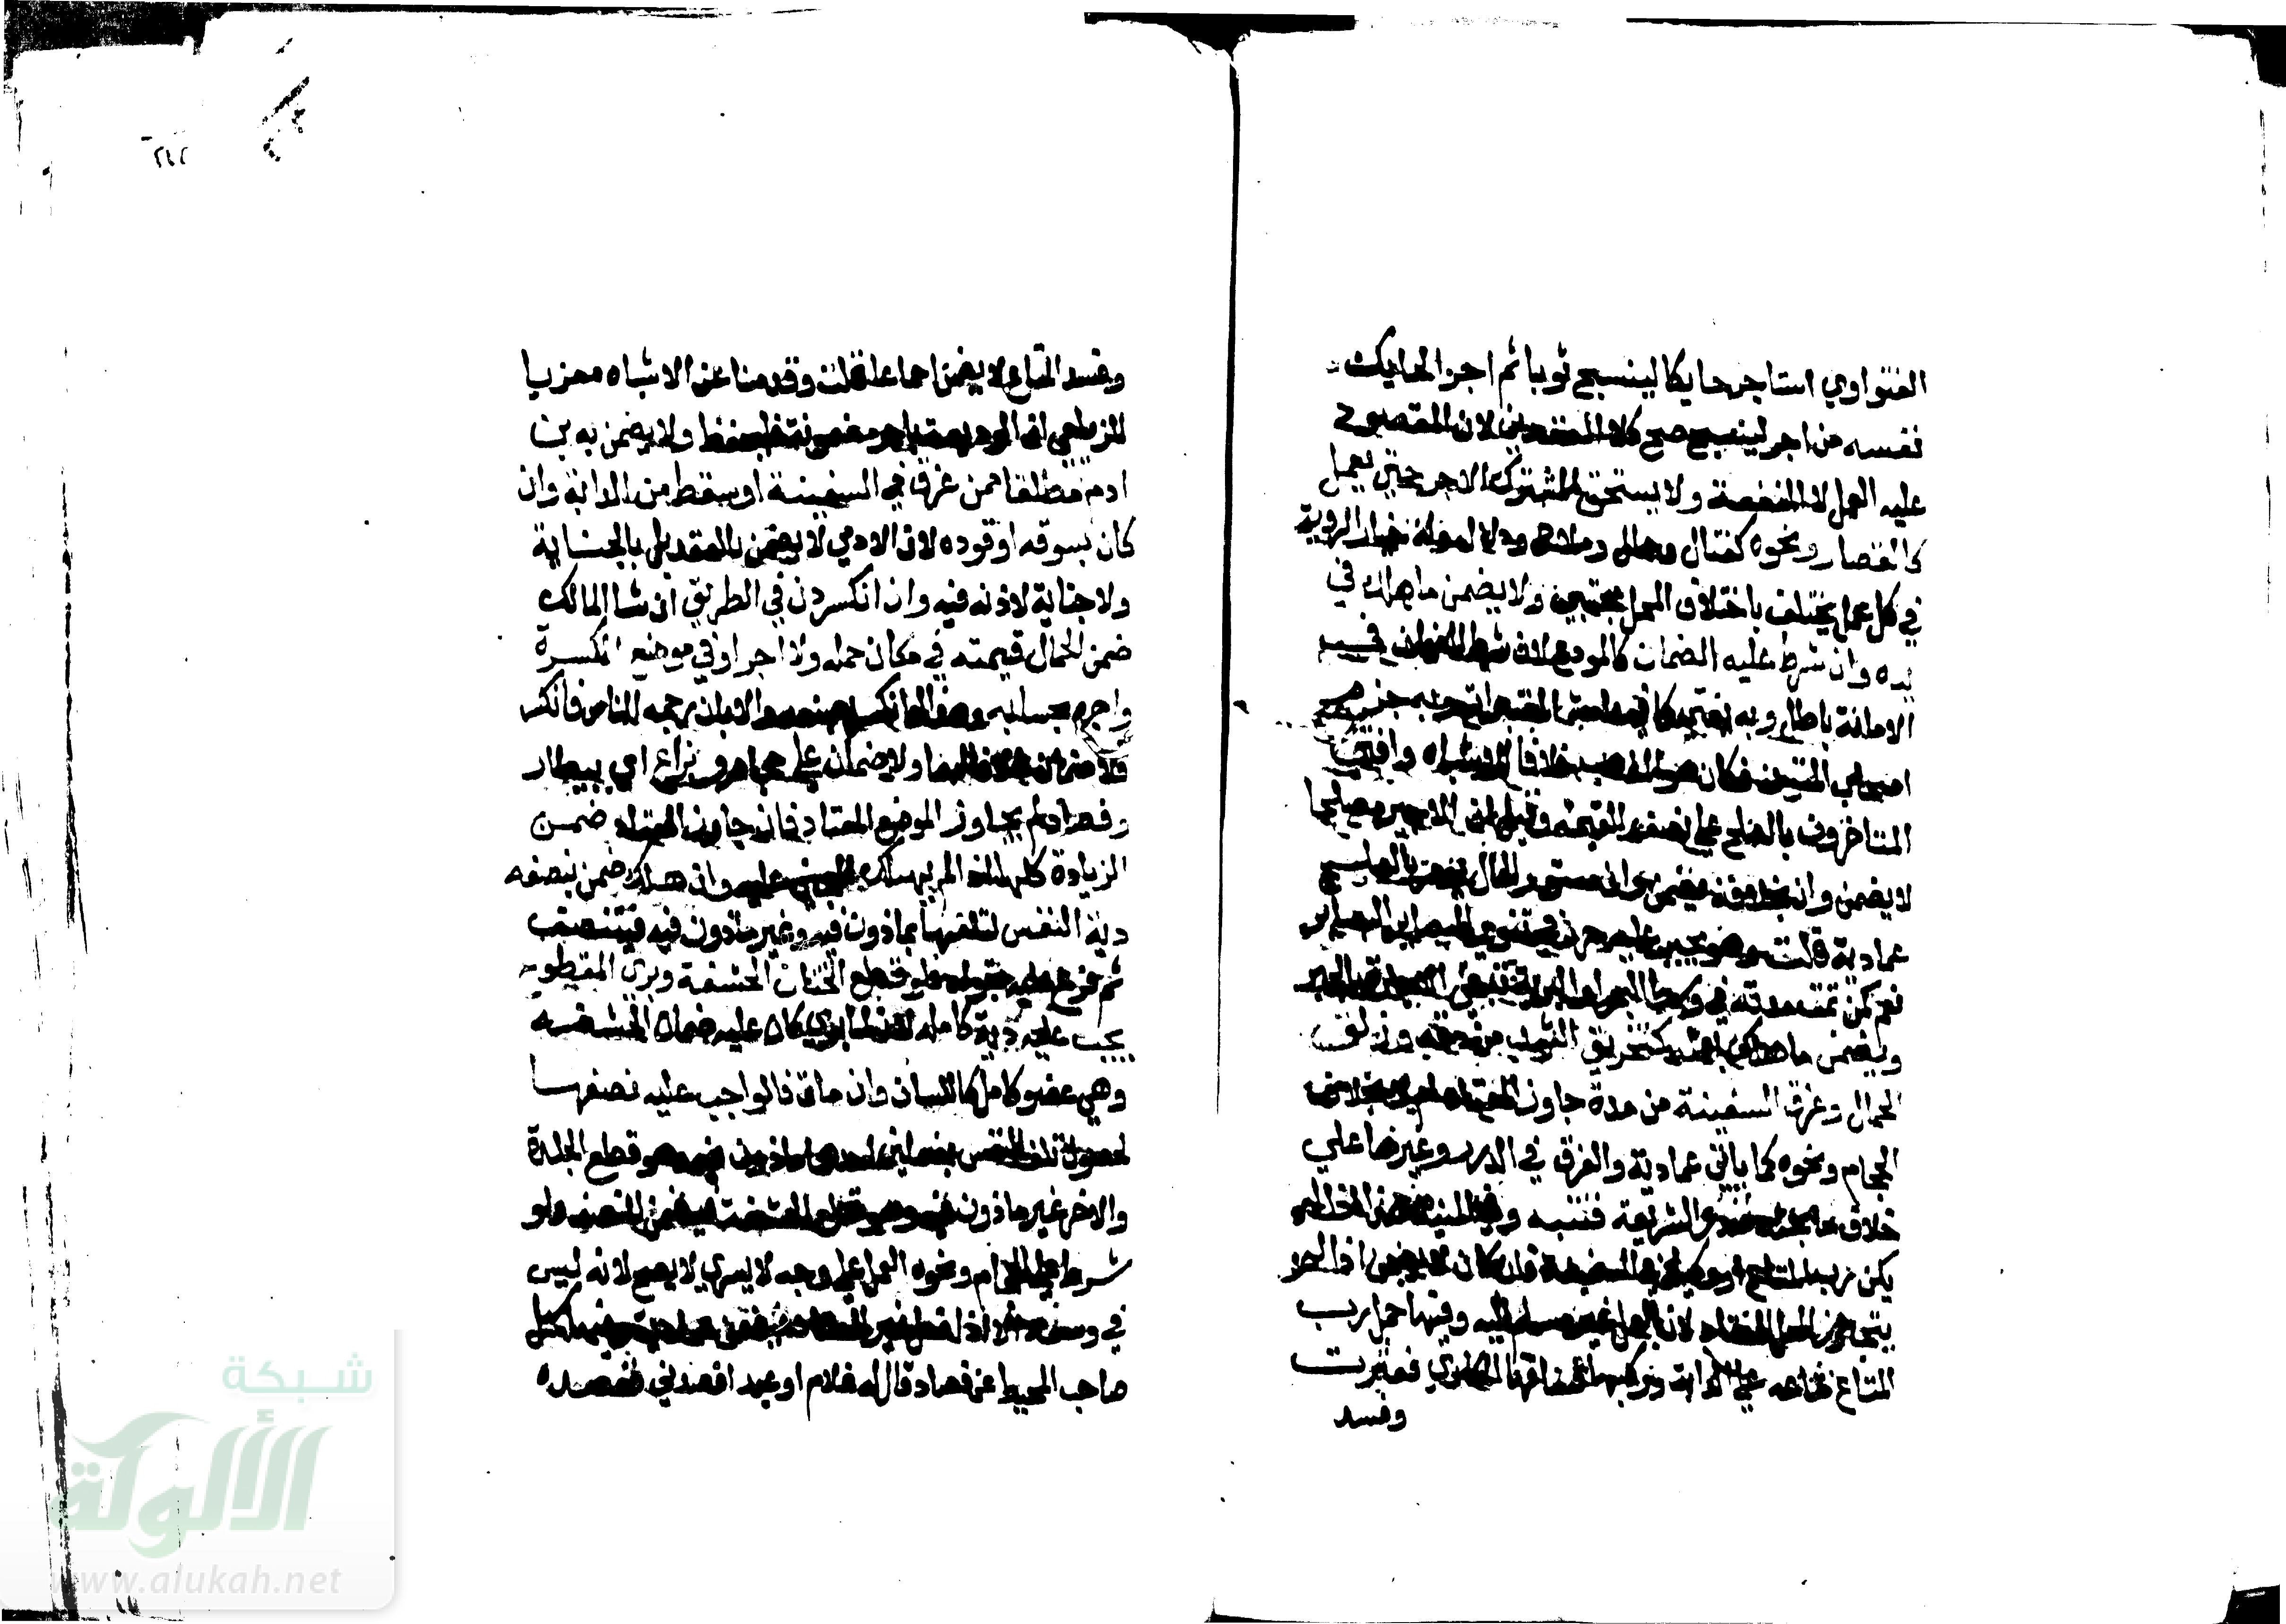 الفتاوي استاجر حايكا لينسج ثوبا ثم اجر الحايك
نفسه من اخر لينسج صح كلا العقدين لان المعقود
عليه العمل لا المنفعة ولا يستحق المشترك الاجر حتي يعمل
كالقصار ونحوه كفتال وحمال ودلال وملاح وله خيار الروية
في كل عمل يختلف باختلاف المحل مجتبي ولا يضمن ما هلك في
يده وان شرط عليه الضمان كالمودع لان شرط الضمان في
الامانة باطل وبه يفتي كما في عامة المعتبرات وبه جزم
اصحاب المتون فكان هو المذهب خلافا للاشباه وافتي
المتاخرون بالصلح علي نصف القيمة وقيل ان الاجير مصلحا
لا يضمن وان بخلافه يضمن وان مستور الحال يؤمر بالصلح
عمادية قلت وهل يجبر عليه حرر في تنوير البصاير
نعم كمن تمت مدته في وسط البحر او البرية تبقي الاجارة بالجبر
ويضمن ما هلك بعمله كتخريق الثوب من دقه وزلق
الحمال وغرق السفينة من مده جاوز المعتاد ام لا بخلاف
الحجام ونحوه كما ياتي عمادية والفرق في الدرر وغيرها علي
خلاف ما بحثه صدر الشريعة فتنبه وفي المنية هذا اذا لم
يكن رب المتاع او وكيله في السفينة فان كان لا يضمن اذا لم
يتجاوز المعتاد لان العمل غير مسلم اليه وفيها حمل رب
المتاع متاعه علي الدابة وركبها فساقها المكاري فعثرت
وفسد
وفسد المتاع لا يضمن اجماعا قلت وقدمنا عن الاشباه معزيا
للزيلعي ان الوديعة باجر مضمونة فليحفظ ولا يضمن به بني
ادم مطلقا ممن غرق في السفينة او سقط من الدابة وان
كان بسوقه او قوده لان الادمي لا يضمن بالعقد بل بالجناية
ولا جناية لاذنه فيه وان انكسر دن في الطريق ان شا المالك
ضمن الحمال قيمته في مكان حمله ولا اجر او في موضع الكسر
واجره بحسابه وهذا لو انكسر بصنعه والا بان زحمه الناس فانكسر
فلا ضمان خلافا لهما ولا ضمان علي حجام وبزاغ اي بيطار
وفصاد لم يجاوز الموضع المعتاد فان جاوز المعتاد ضمن
الزيادة كلها اذا لم يهلك المجني عليه وان هلك ضمن نصفه
دية النفس لتلفها بماذون فيه وغير ماذون فيه فيتنصف
ثم فرع عليه بقوله فلو قطع الختان الحشفة وبري المقطوع
يجب عليه دية كاملة لانه لما بري كان عليه ضمان الحشفه
وهي عضو كامل كاللسان وان مات فالواجب عليه نصفها
لحصول تلف النفس بفعلين احدهما ماذون فيه وهو قطع الجلدة
والاخر غير ماذون فيه وهو قطع الحشفة فيضمن النصف ولو
شرط علي الحجام ونحوه العمل علي وجه لا يسري لا يصح لانه ليس
في وسعه الا اذا فعل غير المعتاد فيضمن عمادية وفيها سئل
صاحب المحيط عن فصاد قال له غلام او عبد افصدني ففصده